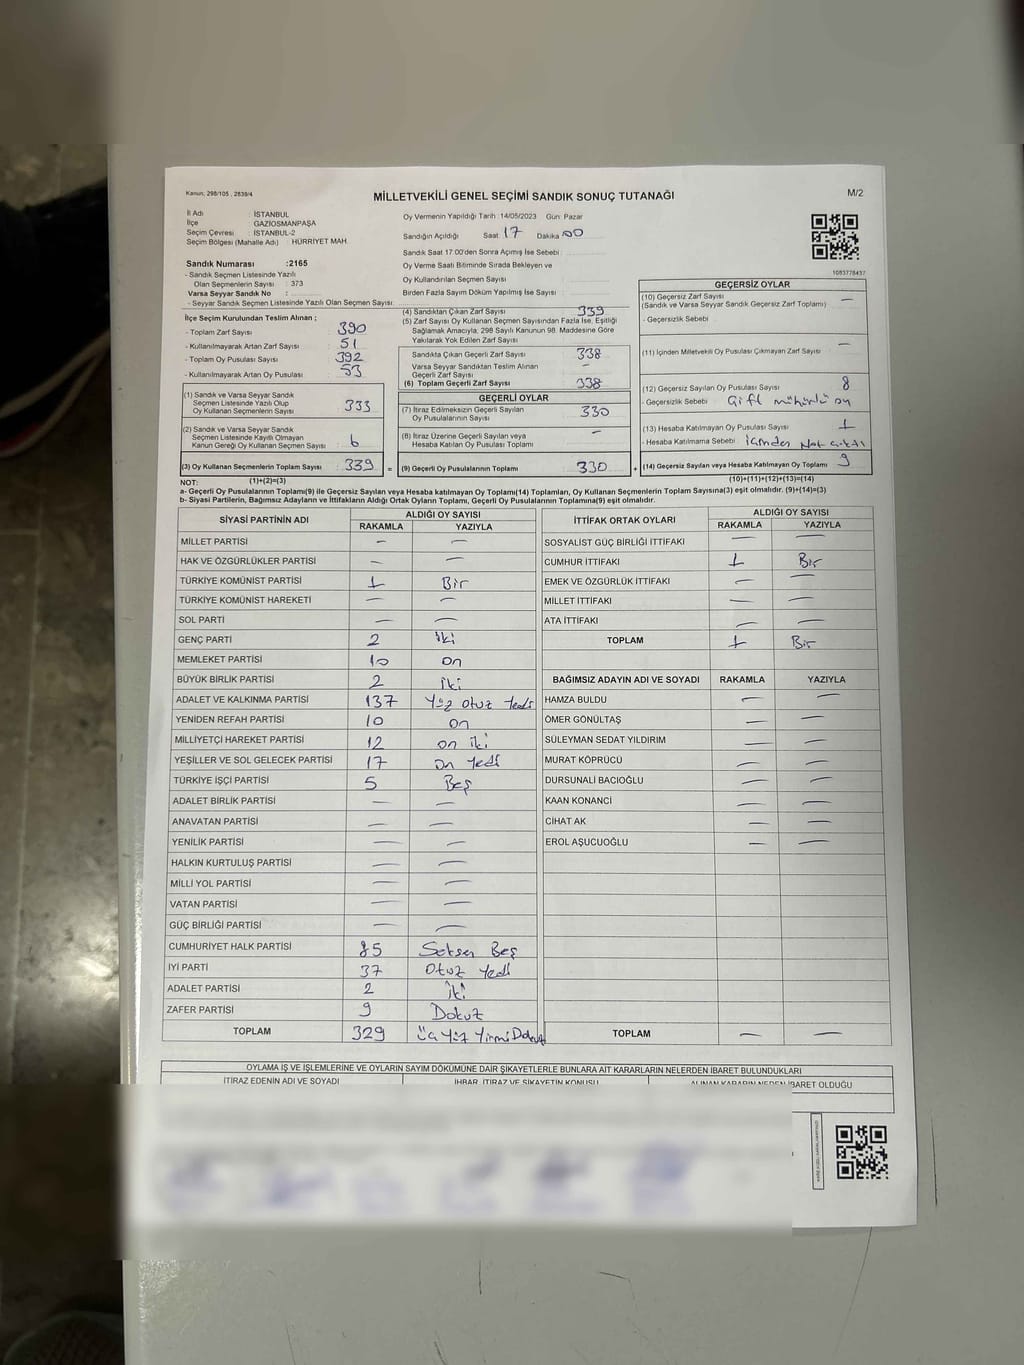 Kanun, 298/105 , 2839/4
MİLLETVEKİLİ GENEL SEÇİMİ SANDIK SONUÇ TUTANAĞI
M/2
İl Adı : İSTANBUL
İlçe : GAZİOSMANPAŞA
Seçim Çevresi : İSTANBUL-2
Seçim Bölgesi (Mahalle Adı) : HÜRRİYET MAH.
Sandık Numarası :2165
- Sandık Seçmen Listesinde Yazılı
Olan Seçmenlerin Sayısı : 373
Varsa Seyyar Sandık No :
- Seyyar Sandık Seçmen Listesinde Yazılı Olan Seçmen Sayısı:
Oy Vermenin Yapıldığı Tarih :14/05/2023 Gün: Pazar
Sandığın Açıldığı Saat: 17 Dakika 00
Sandık Saat 17:00'den Sonra Açımış İse Sebebi :
Oy Verme Saati Bitiminde Sırada Bekleyen ve
Oy Kullandırılan Seçmen Sayısı
Birden Fazla Sayım Döküm Yapılmış İse Sayısı :
1083778437
İlçe Seçim Kurulundan Teslim Alınan ;
- Toplam Zarf Sayısı : 390
- Kullanılmayarak Artan Zarf Sayısı : 51
- Toplam Oy Pusulası Sayısı : 392
- Kullanılmayarak Artan Oy Pusulası : 53
(1) Sandık ve Varsa Seyyar Sandık
Seçmen Listesinde Yazılı Olup
Oy Kullanan Seçmenlerin Sayısı : 333
(2) Sandık ve Varsa Seyyar Sandık
Seçmen Listesinde Kayıtlı Olmayan
Kanun Gereği Oy Kullanan Seçmen Sayısı : 6
(3) Oy Kullanan Seçmenlerin Toplam Sayısı : 339
(1)+(2)=(3)
(4) Sandıktan Çıkan Zarf Sayısı : 339
(5) Zarf Sayısı Oy Kullanan Seçmen Sayısından Fazla İse, Eşitliği
Sağlamak Amacıyla, 298 Sayılı Kanunun 98. Maddesine Göre
Yakılarak Yok Edilen Zarf Sayısı :
Sandıkta Çıkan Geçerli Zarf Sayısı : 338
Varsa Seyyar Sandıktan Teslim Alınan
Geçerli Zarf Sayısı : –
(6) Toplam Geçerli Zarf Sayısı : 338
GEÇERLİ OYLAR
(7) İtiraz Edilmeksizin Geçerli Sayılan
Oy Pusulalarının Sayısı : 330
(8) İtiraz Üzerine Geçerli Sayılan veya
Hesaba Katılan Oy Pusulası Toplamı : –
= (9) Geçerli Oy Pusulalarının Toplamı : 330
GEÇERSİZ OYLAR
(10) Geçersiz Zarf Sayısı : –
(Sandık ve Varsa Seyyar Sandık Geçersiz Zarf Toplamı)
- Geçersizlik Sebebi :
(11) İçinden Milletvekili Oy Pusulası Çıkmayan Zarf Sayısı : –
(12) Geçersiz Sayılan Oy Pusulası Sayısı : 8
- Geçersizlik Sebebi : Çift mühürlü oy
(13) Hesaba Katılmayan Oy Pusulası Sayısı : 1
- Hesaba Katılmama Sebebi : içinden Not çıktı
+ (14) Geçersiz Sayılan veya Hesaba Katılmayan Oy Toplamı : 9
(10)+(11)+(12)+(13)=(14)
NOT:
a- Geçerli Oy Pusulalarının Toplamı(9) ile Geçersiz Sayılan veya Hesaba katılmayan Oy Toplamı(14) Toplamları, Oy Kullanan Seçmenlerin Toplam Sayısına(3) eşit olmalıdır. (9)+(14)=(3)
b- Siyasi Partilerin, Bağımsız Adayların ve İttifakların Aldığı Ortak Oyların Toplamı, Geçerli Oy Pusulalarının Toplamına(9) eşit olmalıdır.
SİYASİ PARTİNİN ADI ALDIĞI OY SAYISI
RAKAMLA YAZIYLA
MİLLET PARTİSİ – –
HAK VE ÖZGÜRLÜKLER PARTİSİ – –
TÜRKİYE KOMÜNİST PARTİSİ 1 Bir
TÜRKİYE KOMÜNİST HAREKETİ – –
SOL PARTİ – –
GENÇ PARTİ 2 iki
MEMLEKET PARTİSİ 10 on
BÜYÜK BİRLİK PARTİSİ 2 iki
ADALET VE KALKINMA PARTİSİ 137 Yüz otuz Yedi
YENİDEN REFAH PARTİSİ 10 on
MİLLİYETÇİ HAREKET PARTİSİ 12 on iki
YEŞİLLER VE SOL GELECEK PARTİSİ 17 on Yedi
TÜRKİYE İŞÇİ PARTİSİ 5 Beş
ADALET BİRLİK PARTİSİ – –
ANAVATAN PARTİSİ – –
YENİLİK PARTİSİ – –
HALKIN KURTULUŞ PARTİSİ – –
MİLLİ YOL PARTİSİ – –
VATAN PARTİSİ – –
GÜÇ BİRLİĞİ PARTİSİ – –
CUMHURİYET HALK PARTİSİ 85 Seksen Beş
İYİ PARTİ 37 Otuz Yedi
ADALET PARTİSİ 2 iki
ZAFER PARTİSİ 9 Dokuz
TOPLAM 329 üç Yüz Yirmi Dokuz
İTTİFAK ORTAK OYLARI ALDIĞI OY SAYISI
RAKAMLA YAZIYLA
SOSYALİST GÜÇ BİRLİĞİ İTTİFAKI – –
CUMHUR İTTİFAKI 1 Bir
EMEK VE ÖZGÜRLÜK İTTİFAKI – –
MİLLET İTTİFAKI – –
ATA İTTİFAKI – –
TOPLAM 1 Bir
BAĞIMSIZ ADAYIN ADI VE SOYADI RAKAMLA YAZIYLA
HAMZA BULDU – –
ÖMER GÖNÜLTAŞ – –
SÜLEYMAN SEDAT YILDIRIM – –
MURAT KÖPRÜCÜ – –
DURSUNALİ BACIOĞLU – –
KAAN KONANCİ – –
CİHAT AK – –
EROL AŞUCUOĞLU – –
TOPLAM – –
OYLAMA İŞ VE İŞLEMLERİNE VE OYLARIN SAYIM DÖKÜMÜNE DAİR ŞİKAYETLERLE BUNLARA AİT KARARLARIN NELERDEN İBARET BULUNDUKLARI
İTİRAZ EDENİN ADI VE SOYADI İHBAR, İTİRAZ VE ŞİKAYETİN KONUSU ALINAN KARARIN NEDEN İBARET OLDUĞU